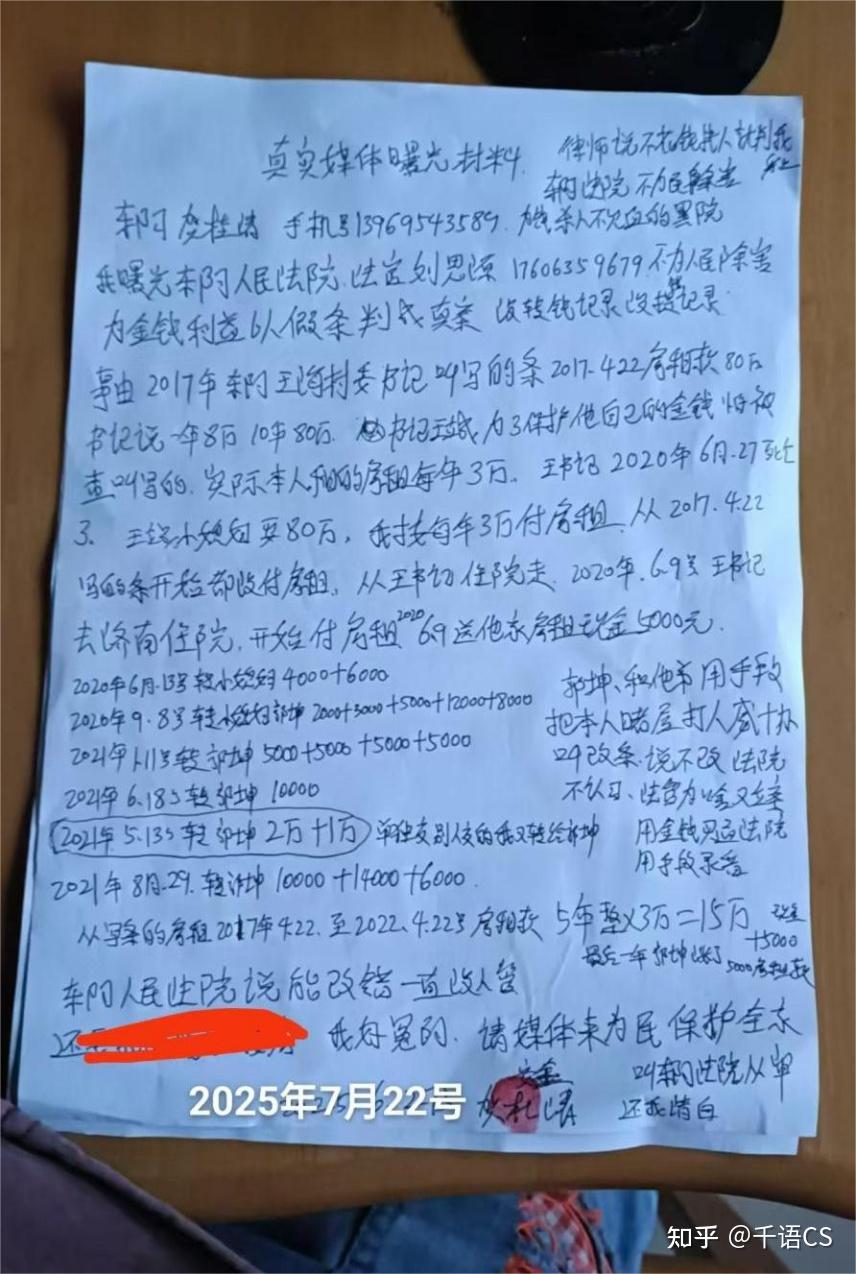 真实媒体曝光材料
律师说不花钱
东阿法院不为民除害
东阿 桂清 手机号13969543589. 杀人不见血的黑院
我曝光东阿人民法院.法官刘思源 17606359679不为人民除害
为金钱利益 假条判成真案 没转钱记录没 记录
事由2017年东阿王海村委书记叫写的条2017.4.22房租款80万
书记说一年8万10年80万. 书记王 为了保护他自己的金钱怕被
查叫写的.实际本人租的房租每年3万. 王书记2020年6月.27死亡
了. 王 小媳妇要80万,我按每年3万付房租.从2017.4.22
写的条开始都没付房租.从王书记住院走.2020年.6.9号王书记
去济南住院.开始付房租2020 6.9送他家房租现金5000元.
2020年6月.13号转小媳妇4000+6000
2020年9.8号转小媳妇郭坤2000+3000+5000+12000+8000
2021年1.11号转郭坤5000+5000+5000+5000
2021年6.18号转郭坤10000
2021年5.13号转郭坤2万+1万 单独 别人 的我又转给郭坤
2021年8月.29.转郭坤10000+14000+6000.
郭坤、和他弟用手段
把本人 屋打人威
叫改条.说不改法院
不认可、法官为啥又立案
用金钱买通法院
用手段录音
从写条的房租2017年4.22.至2022.4.22号房租款5年整×3万=15万 现金
+5000
最后一年郭坤 了5000房租款
东阿人民法院说能改错一直没人管
还
我好冤的.请媒体来为民保护全家
安全
叫东阿法院从审
还我清白
2025年7月22号
知乎 @千语CS